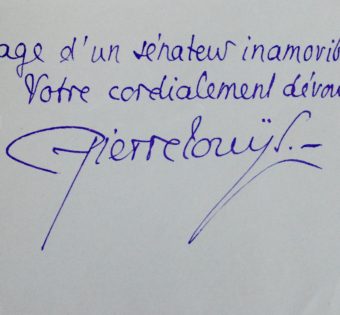 age d'un sénateur inamovib
Votre cordialement dévou
Pierre Louÿs.—